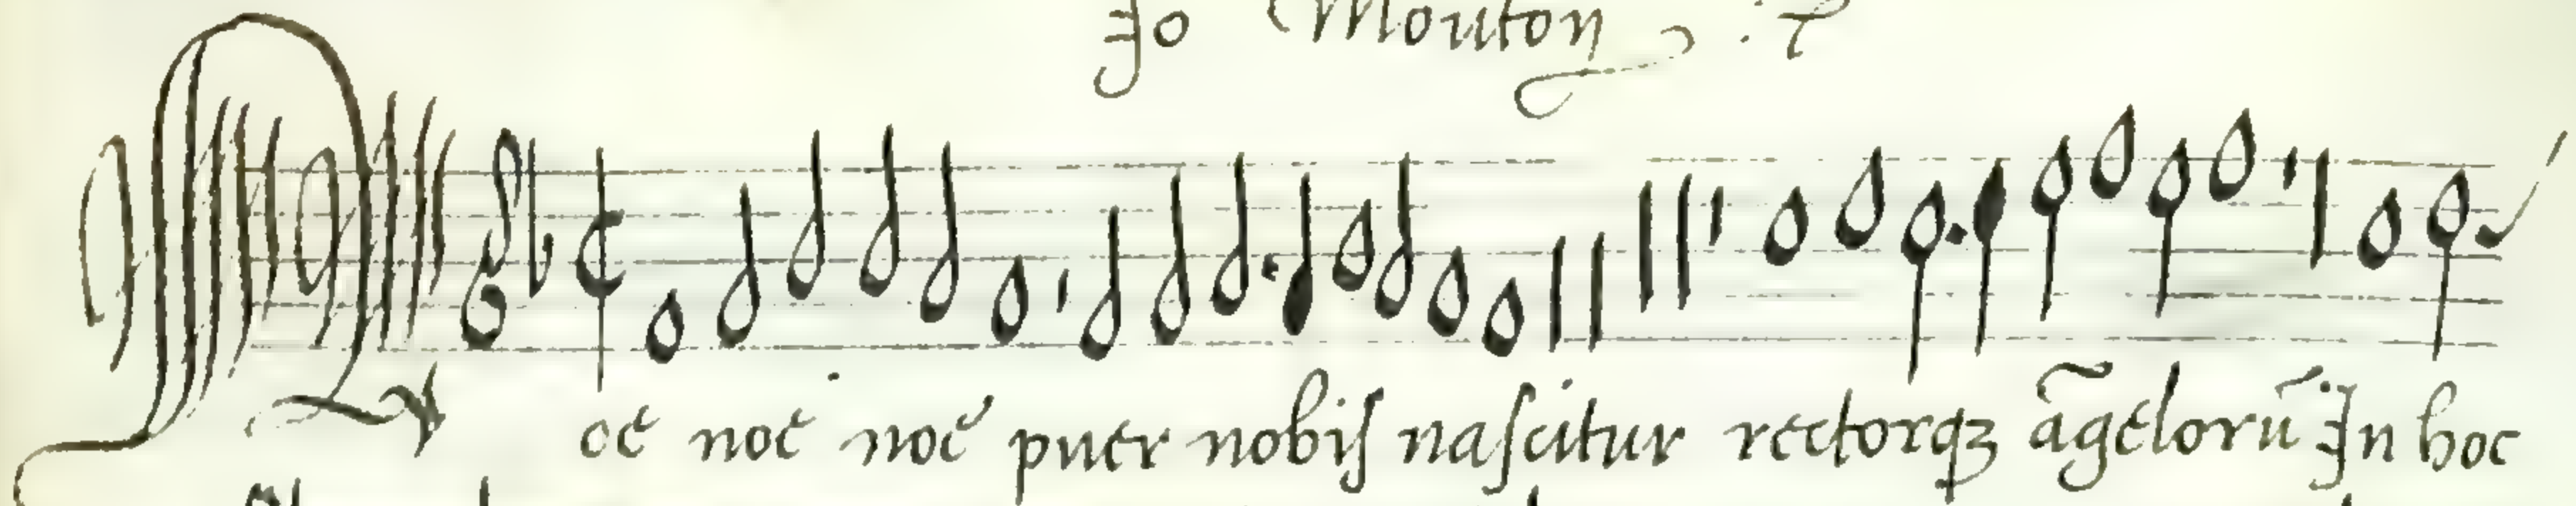 Jo Mouton
Noe noe noe puer nobiſ naſcitur rectorqꝫ āgelorū In hoc